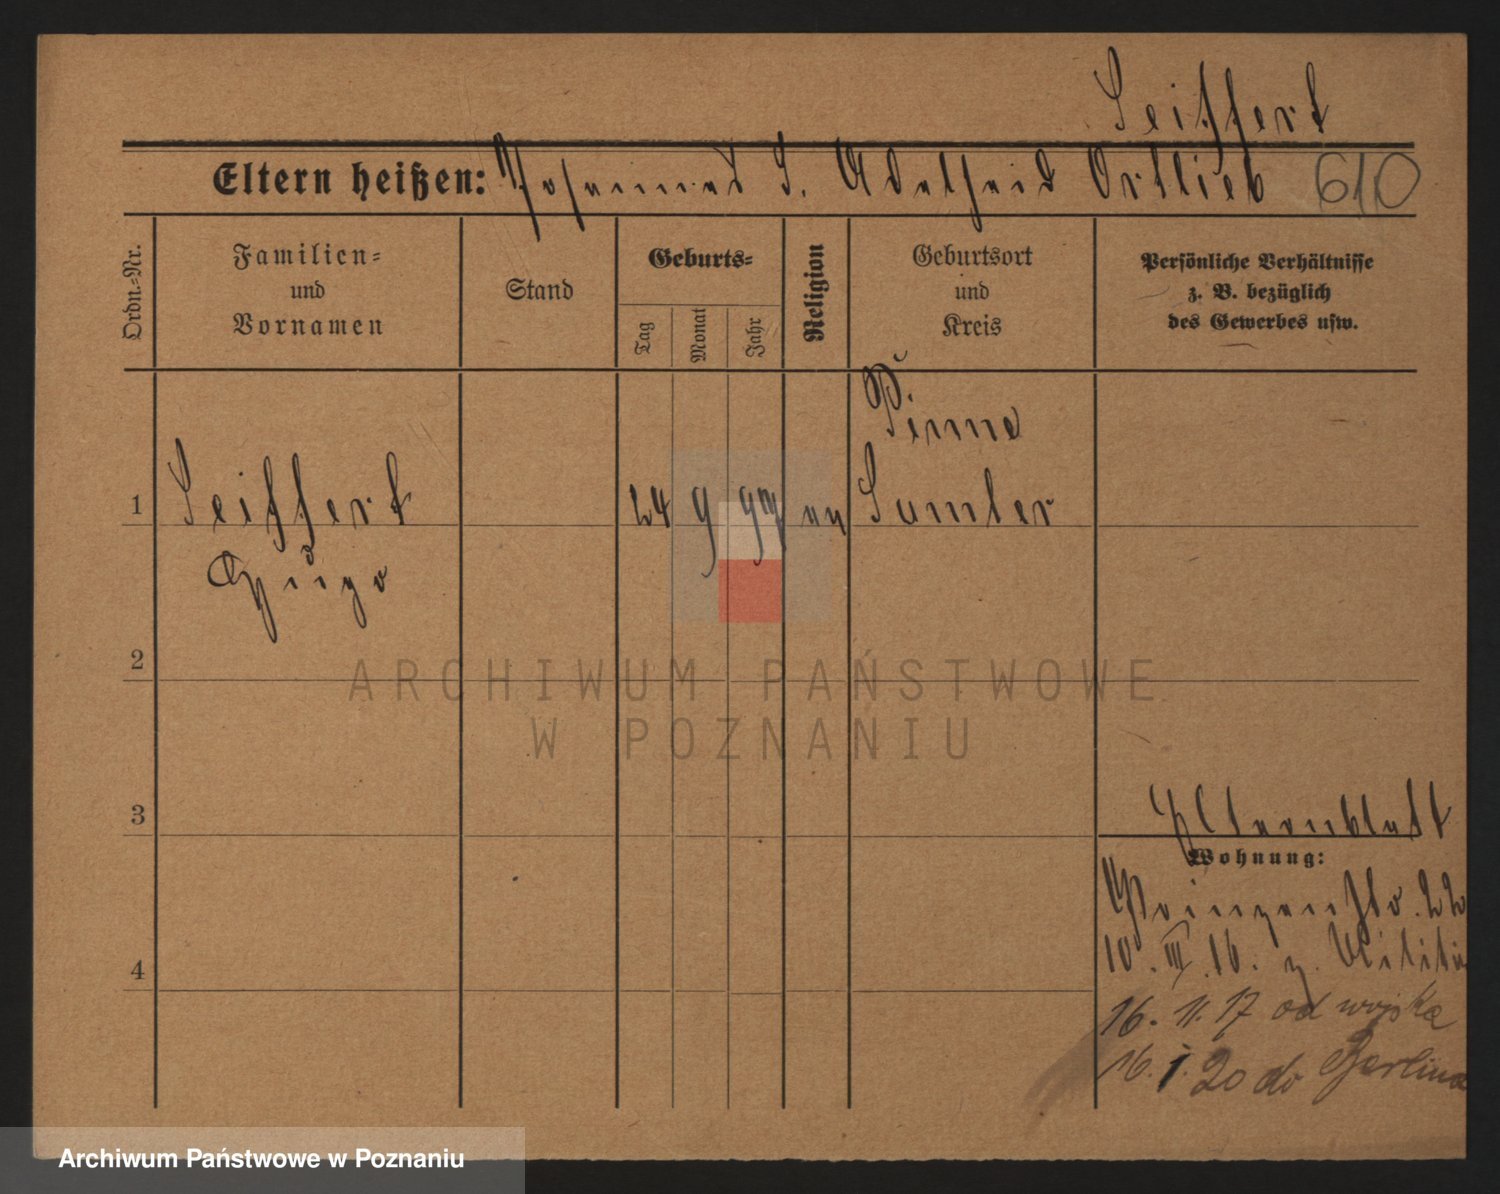 Seiffert
Eltern heißen: Johannes S. Adelheid Ortlieb 610
Ordn.-Nr.
Familien-
und
Vornamen
Stand
Geburts-
Tag
Monat
Jahr
Religion
Geburtsort
und
Kreis
Persönliche Verhältnisse
z. B. bezüglich
des Gewerbes usw.
Pinne
1 Seiffert 24 9 99 ev Samter
Hugo
2
ARCHIWUM PAŃSTWOWE
W POZNANIU
3
Elternblatt
Wohnung:
Prinzenstr. 22
4
10. III. 16. z. Militär
16. 11. 17 od wojska
16. 1. 20 do Berlina
Archiwum Państwowe w Poznaniu